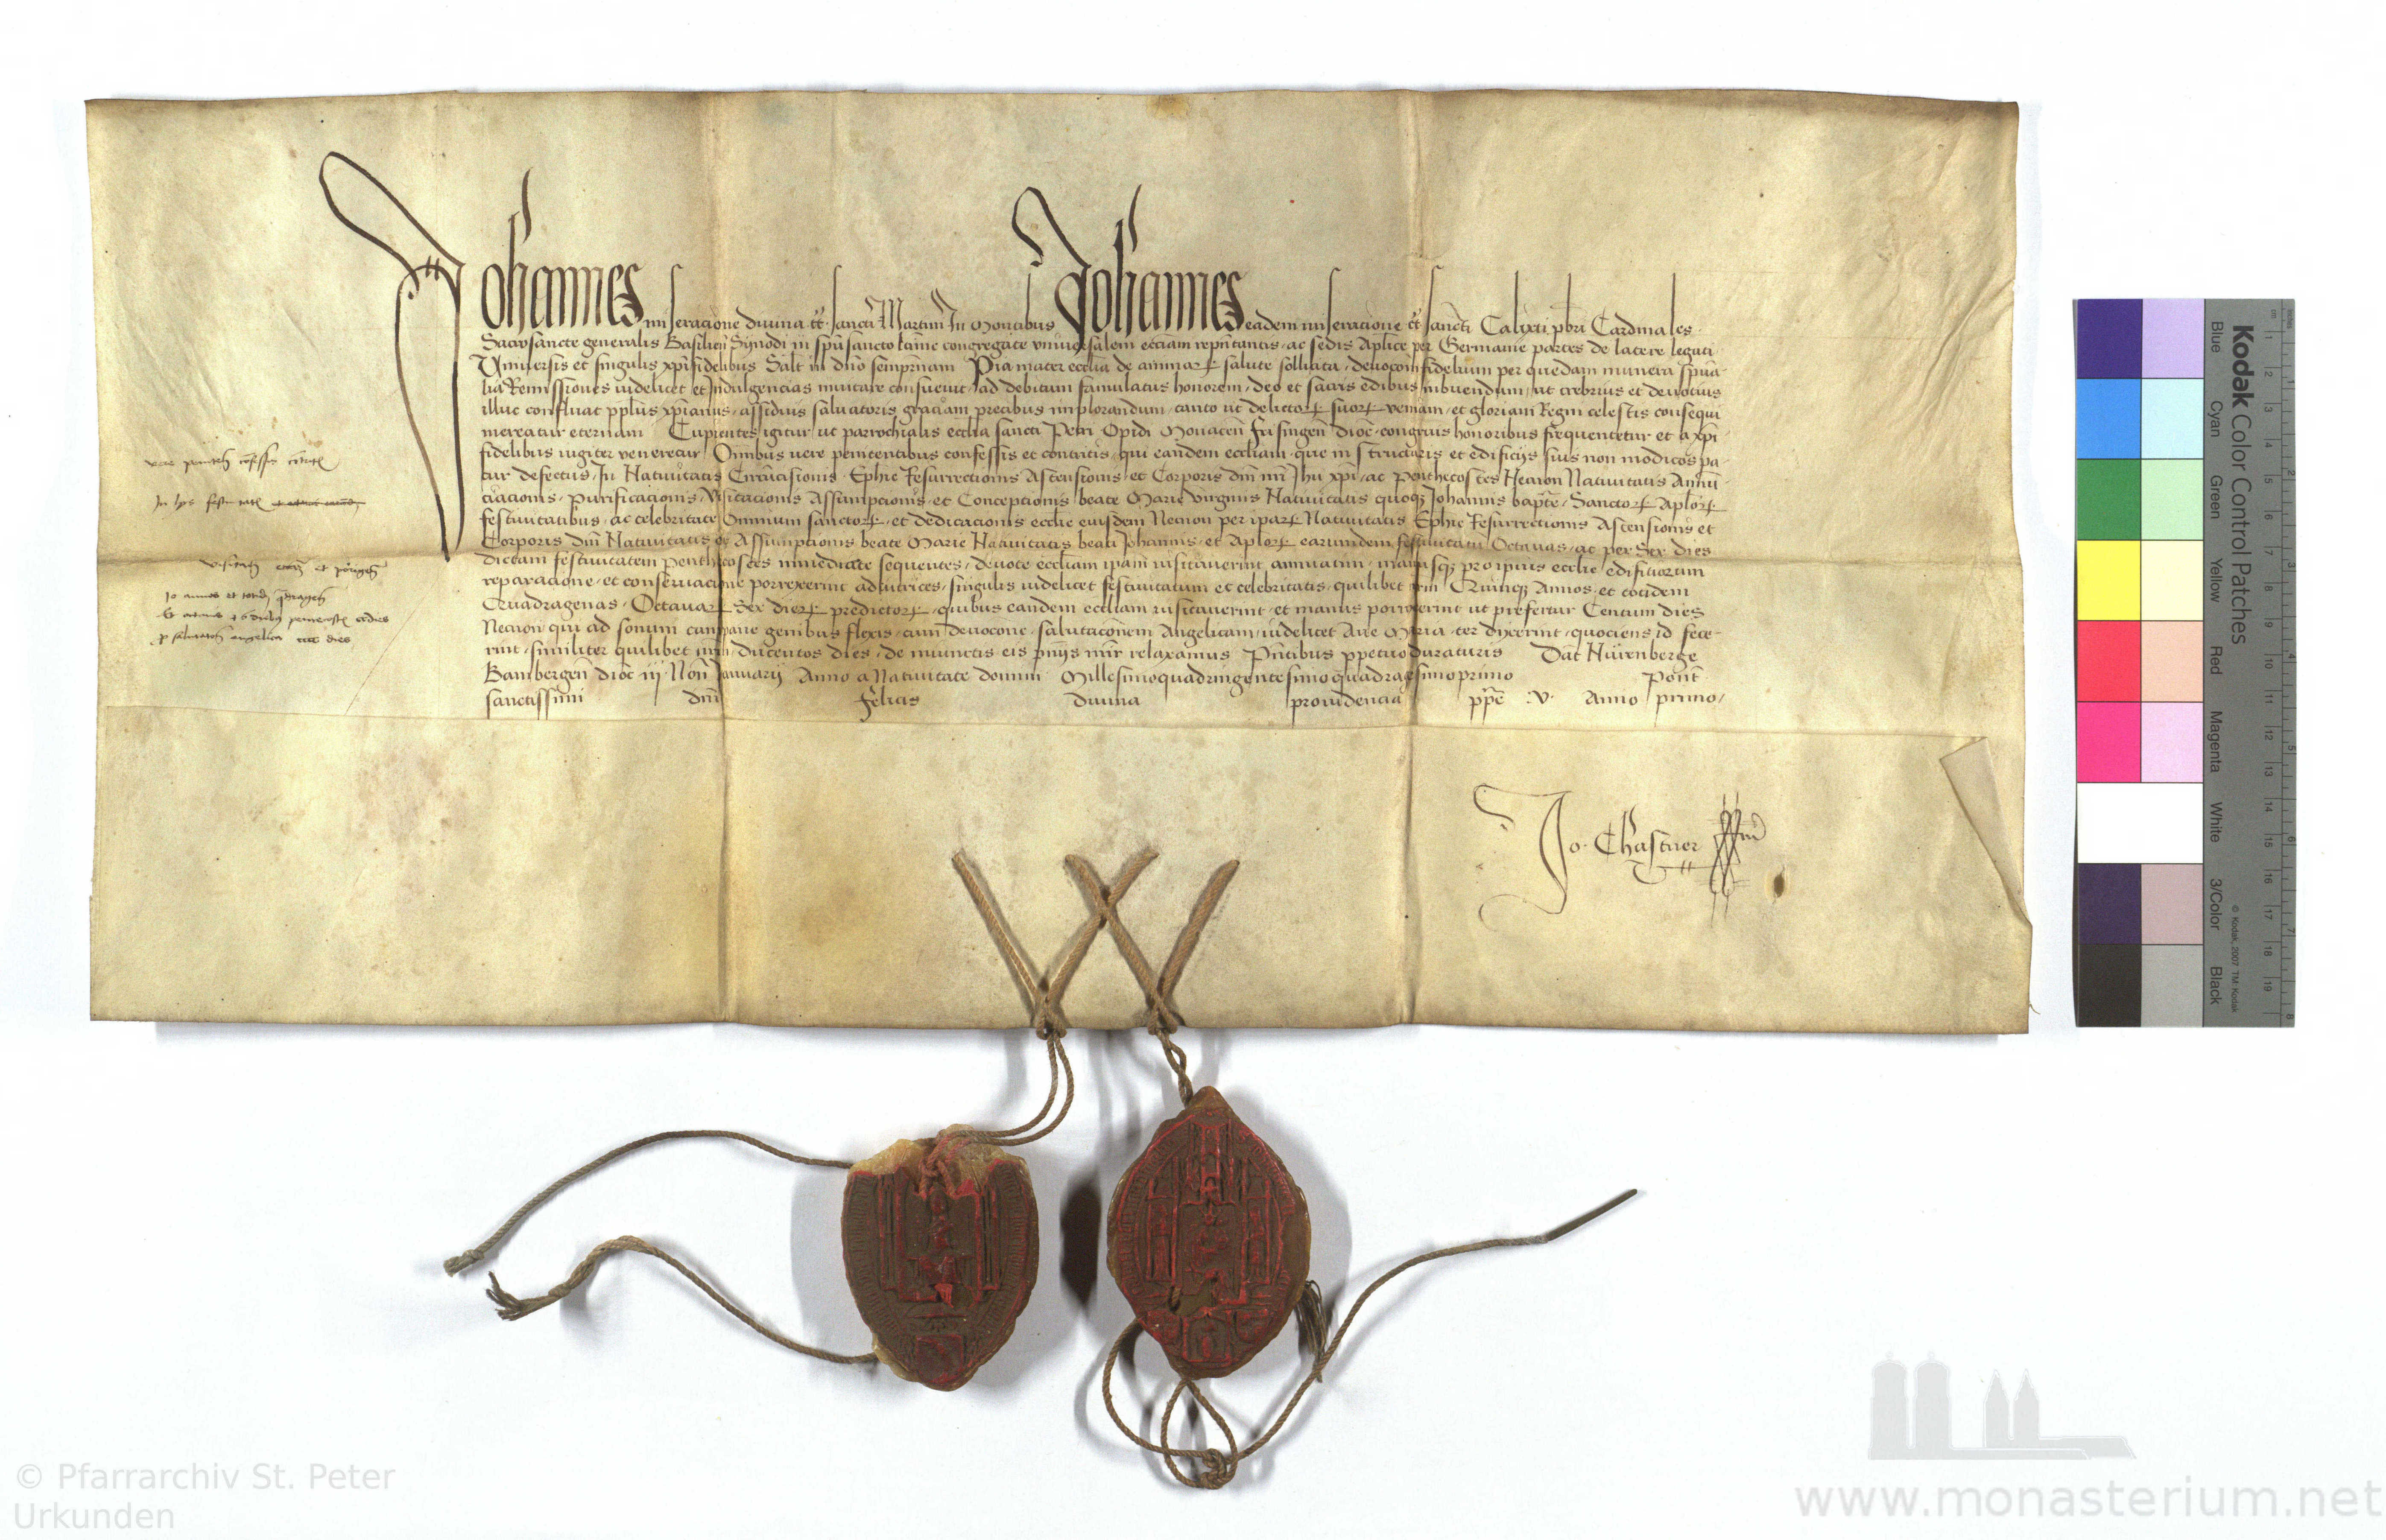 Johannes miseracione divina tt. sancti Martini In Montibus Johannes eadem miseracione tt sancti Calixti pbri Cardinales.
Sacrosancte generalis Basilien Synodi in spusancto ltime congregate universalem ecctiam reprntantis, ac sedis Aplice per Germanie partes de latere legati
Universis et singulis xpifidelibus Salt in dno sempnam Pia mater ecclia de animar salute sollicita, devocom fidelium per quedam munera spua-
lia Remissiones videlicet et Indulgencias invitare consuevit, ad debitum famulatus honorem, deo et sacris edibus inbuendum, ut crebrius et devocius
illuc confluat pplus xpianus, assiduis salvatoris graciam precibus implorandum, canto ut delictor suor veniam, et gloriam Regni celestis consequi
mereatur eternam Cupientes igitur ut parrochialis ecclia sancti Petri Opidi Monacen Frisingen dioc, congruis honoribus frequentetur et a xpi-
fidelibus iugiter veneretur Omnibus vere penitentibus confessis et contritis, qui eandem eccliam, que in structuris et edificijs suis non modicos pa-
tur defectus, In Nativitatis Circucisionis, Ephie Resurrectionis Ascensionis, et Corporis dni nri Jhu xpi, ac Penthecostes Necnon Nativitatis Annu-
ciacionis, Purificacionis, Visitacionis Assumpcionis, et Concepcionis beate Marie virginis Nativitatis quoq Johannis bapte, Sanctor Aplor
festivitatibus, ac celebritate Omnium sanctor, et dedicacionis ecclie eiusdem Necnon per ipar Nativitatis Ephie Resurrectionis Ascensionis et
Corporis dni Nativitatis et Assumpcionis beate Marie Nativitatis beati Johannis, et Aplor earundem festivitatu Octavas, ac per Sex dies
dictam festivitatem Penthecostes immediate sequentes, devote eccliam ipam visitaverint annuatim, manusq pro ipius ecclie edificiorum
reparacione, et conservacione porrexerint adiutrices, singulis videlicet festivitatum et celebritatis, quilibet Quinq Annos, et totidem
Quadragenas, Octavar Sex dier predictor, quibus eandem eccliam visitaverint, et manus porrexerint ut prefertur Centum dies
Necnon qui ad sonum campane genibus flexis, cum devocone, salutaconem Angelicam, videlicet Ave Maria, ter dixerint, quociens id fece-
rint, similiter quilibet, ducentos dies, de iniunctis eis pnijs mir relaxamus Pntibus ppetuo duraturis Dat Nurenberge
Bambergen dioc iij Non Januarij Anno a Nativitate domini Millesimoquadringentesimoquadragesimoprimo Pont
sanctissimi dni Felicis divina providencia ppe .V. Anno primo,
vere penitet confessis
In hys festivitat
et
annos et
dies
p salutaco angelica cc dies
Jo. Chastner
Kodak Color Control Patches
Blue Cyan Green Yellow Red Magenta White 3/Color Black
© Kodak, 2007 TM: Kodak
© Pfarrarchiv St. Peter
Urkunden
www.monasterium.net